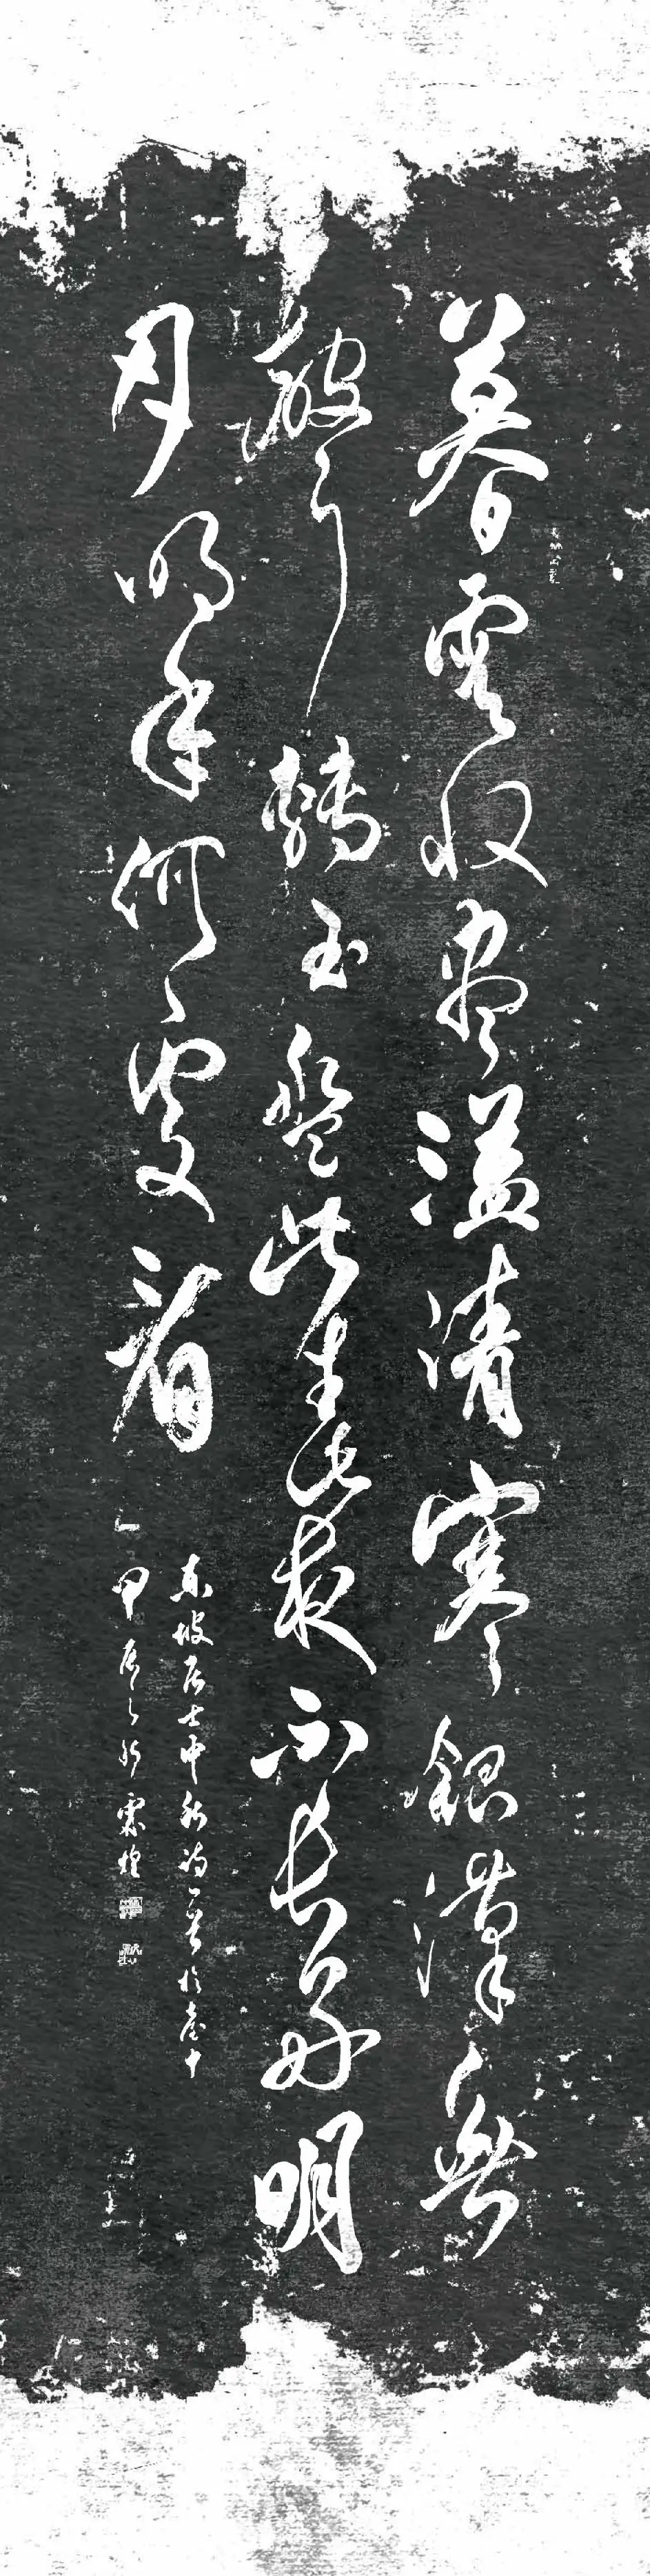 暮雲收盡溢清寒銀漢無
聲轉玉盤此生此夜不長好明
月明年何處看
東坡居士中秋詩
甲辰之秋